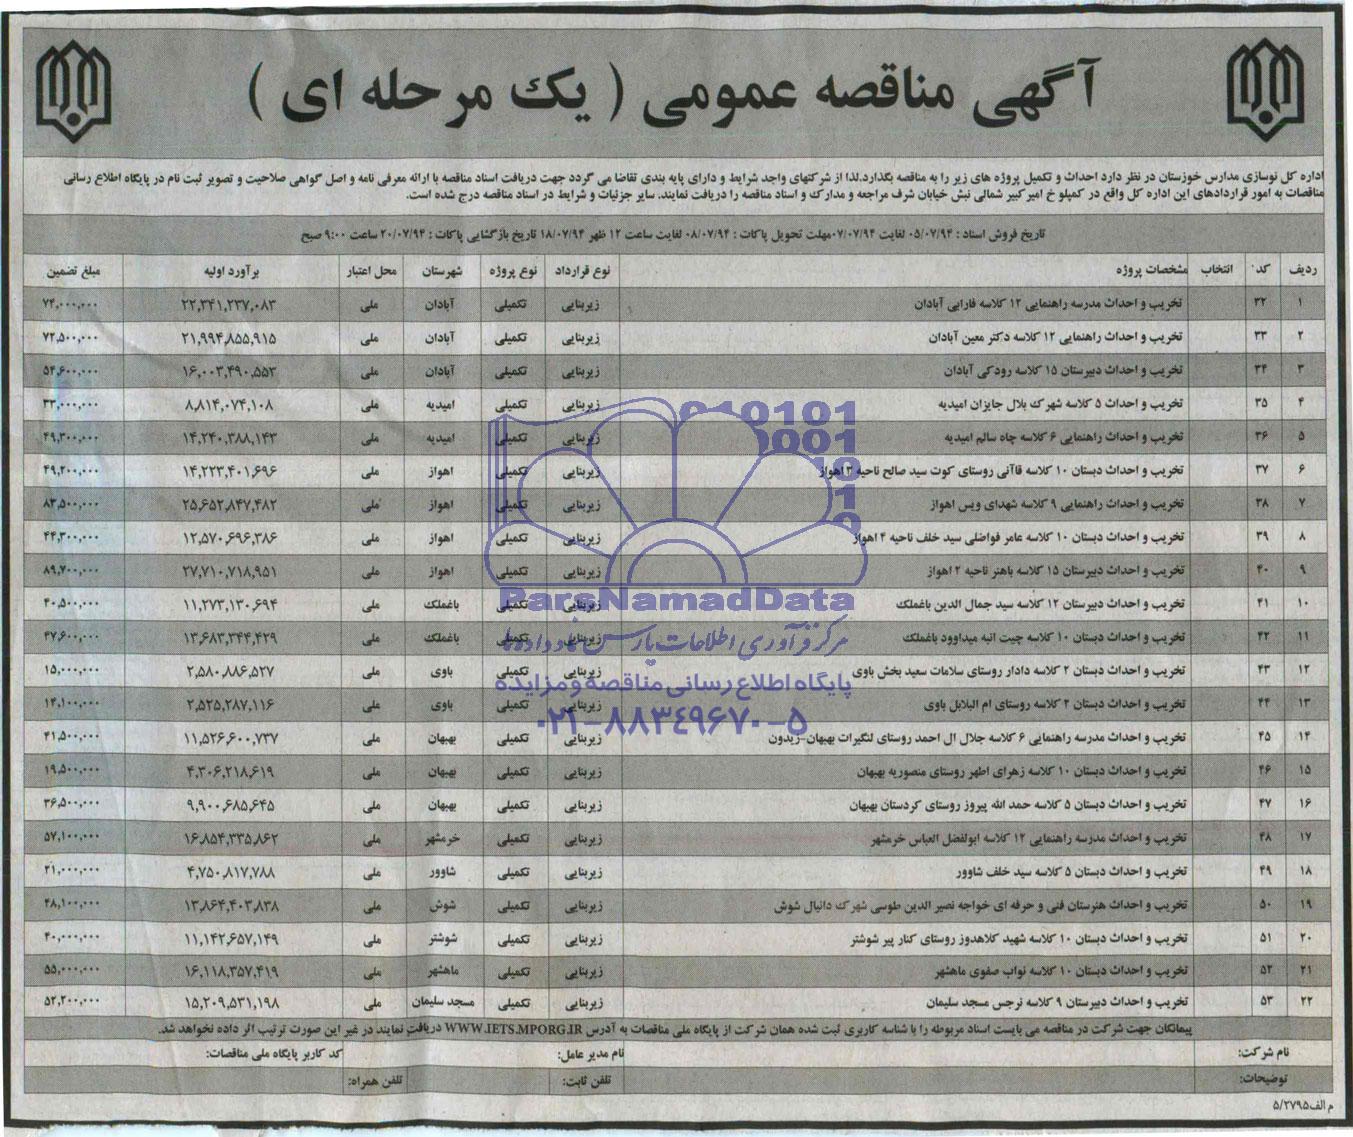 آگهی مناقصه عمومی ( یک مرحله ای )
اداره کل نوسازی مدارس خوزستان در نظر دارد احداث و تکمیل پروژه های زیر را به مناقصه بگذارد.لذا از شرکتهای واجد شرایط و دارای پایه بندی تقاضا می گردد جهت دریافت اسناد مناقصه با ارائه معرفی نامه و اصل گواهی صلاحیت و تصویر ثبت نام در پایگاه اطلاع رسانی
مناقصات به امور قراردادهای این اداره کل واقع در کمپلو خ امیرکبیر شمالی نبش خیابان شرف مراجعه و مدارک و اسناد مناقصه را دریافت نمایند. سایر جزئیات و شرایط در اسناد مناقصه درج شده است.
تاریخ فروش اسناد : ۰۵/۰۷/۹۴ لغایت ۰۷/۰۷/۹۴مهلت تحویل پاکات : ۰۸/۰۷/۹۴ لغایت ساعت ۱۲ ظهر ۱۸/۰۷/۹۴ تاریخ بازگشایی پاکات : ۲۰/۰۷/۹۴ ساعت ۹:۰۰ صبح
ردیف کد انتخاب مشخصات پروژه نوع قرارداد نوع پروژه شهرستان محل اعتبار برآورد اولیه مبلغ تضمین
۱ ۳۲ تخریب و احداث مدرسه راهنمایی ۱۲ کلاسه فارابی آبادان زیربنایی تکمیلی آبادان ملی ۲۲,۳۴۱,۲۳۷,۰۸۳ ۷۴,۰۰۰,۰۰۰
۲ ۳۳ تخریب و احداث راهنمایی ۱۲ کلاسه دکتر معین آبادان زیربنایی تکمیلی آبادان ملی ۲۱,۹۹۴,۸۵۵,۹۱۵ ۷۲,۵۰۰,۰۰۰
۳ ۳۴ تخریب و احداث دبیرستان ۱۵ کلاسه رودکی آبادان زیربنایی تکمیلی آبادان ملی ۱۶,۰۰۳,۴۹۰,۵۵۳ ۵۴,۶۰۰,۰۰۰
۴ ۳۵ تخریب و احداث ۵ کلاسه شهرک بلال جایزان امیدیه زیربنایی تکمیلی امیدیه ملی ۸,۸۱۴,۰۷۴,۱۰۸ ۳۳,۰۰۰,۰۰۰
۵ ۳۶ تخریب و احداث راهنمایی ۶ کلاسه چاه سالم امیدیه زیربنایی تکمیلی امیدیه ملی ۱۴,۲۴۰,۳۸۸,۱۴۳ ۴۹,۳۰۰,۰۰۰
۶ ۳۷ تخریب و احداث دبستان ۱۰ کلاسه قاآنی روستای کوت سید صالح ناحیه ۳ اهواز زیربنایی تکمیلی اهواز ملی ۱۴,۲۲۳,۴۰۱,۶۹۶ ۴۹,۲۰۰,۰۰۰
۷ ۳۸ تخریب و احداث راهنمایی ۹ کلاسه شهدای ویس اهواز زیربنایی تکمیلی اهواز ملی ۲۵,۶۵۲,۸۴۷,۴۸۲ ۸۳,۵۰۰,۰۰۰
۸ ۳۹ تخریب و احداث دبستان ۱۰ کلاسه عامر فواضلی سید خلف ناحیه ۴ اهواز زیربنایی تکمیلی اهواز ملی ۱۲,۵۷۰,۶۹۶,۳۸۶ ۴۴,۳۰۰,۰۰۰
۹ ۴۰ تخریب و احداث دبیرستان ۱۵ کلاسه باهنر ناحیه ۲ اهواز زیربنایی تکمیلی اهواز ملی ۲۷,۷۱۰,۷۱۸,۹۵۱ ۸۹,۷۰۰,۰۰۰
۱۰ ۴۱ تخریب و احداث دبیرستان ۱۲ کلاسه سید جمال الدین باغملک زیربنایی تکمیلی باغملک ملی ۱۱,۲۷۳,۱۳۰,۶۹۴ ۴۰,۵۰۰,۰۰۰
۱۱ ۴۲ تخریب و احداث دبستان ۱۰ کلاسه چیت انبه میداوود باغملک زیربنایی تکمیلی باغملک ملی ۱۳,۶۸۳,۳۴۴,۴۲۹ ۴۷,۶۰۰,۰۰۰
۱۲ ۴۳ تخریب و احداث دبستان ۲ کلاسه دادار روستای سلامات سعید بخش باوی زیربنایی تکمیلی باوی ملی ۲,۵۸۰,۸۸۶,۵۲۷ ۱۵,۰۰۰,۰۰۰
۱۳ ۴۴ تخریب و احداث دبستان ۲ کلاسه روستای ام البلابل باوی زیربنایی تکمیلی باوی ملی ۲,۵۲۵,۲۸۷,۱۱۶ ۱۴,۱۰۰,۰۰۰
۱۴ ۴۵ تخریب و احداث مدرسه راهنمایی ۶ کلاسه جلال ال احمد روستای لنگیرات بهبهان-زیدون زیربنایی تکمیلی بهبهان ملی ۱۱,۵۲۶,۶۰۰,۷۳۷ ۴۱,۵۰۰,۰۰۰
۱۵ ۴۶ تخریب و احداث دبستان ۱۰ کلاسه زهرای اطهر روستای منصوریه بهبهان زیربنایی تکمیلی بهبهان ملی ۴,۳۰۶,۲۱۸,۶۱۹ ۱۹,۵۰۰,۰۰۰
۱۶ ۴۷ تخریب و احداث دبستان ۵ کلاسه حمد الله پیروز روستای کردستان بهبهان زیربنایی تکمیلی بهبهان ملی ۹,۹۰۰,۶۸۵,۶۴۵ ۳۶,۵۰۰,۰۰۰
۱۷ ۴۸ تخریب و احداث مدرسه راهنمایی ۱۲ کلاسه ابولفضل العباس خرمشهر زیربنایی تکمیلی خرمشهر ملی ۱۶,۸۵۴,۳۳۵,۸۶۲ ۵۷,۱۰۰,۰۰۰
۱۸ ۴۹ تخریب و احداث دبستان ۵ کلاسه سید خلف شاوور زیربنایی تکمیلی شاوور ملی ۴,۷۵۰,۸۱۷,۷۸۸ ۲۱,۰۰۰,۰۰۰
۱۹ ۵۰ تخریب و احداث هنرستان فنی و حرفه ای خواجه نصیر الدین طوسی شهرک دانیال شوش زیربنایی تکمیلی شوش ملی ۱۳,۸۶۴,۴۰۳,۸۳۸ ۴۸,۱۰۰,۰۰۰
۲۰ ۵۱ تخریب و احداث دبستان ۱۰ کلاسه شهید کلاهدوز روستای کنار پیر شوشتر زیربنایی تکمیلی شوشتر ملی ۱۱,۱۴۲,۶۵۷,۱۴۹ ۴۰,۰۰۰,۰۰۰
۲۱ ۵۲ تخریب و احداث دبستان ۱۰ کلاسه نواب صفوی ماهشهر زیربنایی تکمیلی ماهشهر ملی ۱۶,۱۱۸,۳۵۷,۴۱۹ ۵۵,۰۰۰,۰۰۰
۲۲ ۵۳ تخریب و احداث دبیرستان ۹ کلاسه نرجس مسجد سلیمان زیربنایی تکمیلی مسجد سلیمان ملی ۱۵,۲۰۹,۵۳۱,۱۹۸ ۵۲,۲۰۰,۰۰۰
پیمانکان جهت شرکت در مناقصه می بایست اسناد مربوطه را با شناسه کاربری ثبت شده همان شرکت از پایگاه ملی مناقصات به آدرس WWW.IETS.MPORG.IR دریافت نمایند در غیر این صورت ترتیب اثر داده نخواهد شد.
نام شرکت: نام مدیر عامل: کد کاربر پایگاه ملی مناقصات:
توضیحات: تلفن ثابت: تلفن همراه:
م الف۵/۲۷۹۵
ParsNamadData
مرکز فرآوری اطلاعات پارس نماد داده ها
پایگاه اطلاع رسانی مناقصه و مزایده
۰۲۱-۸۸۳۴۹۶۷۰-۵